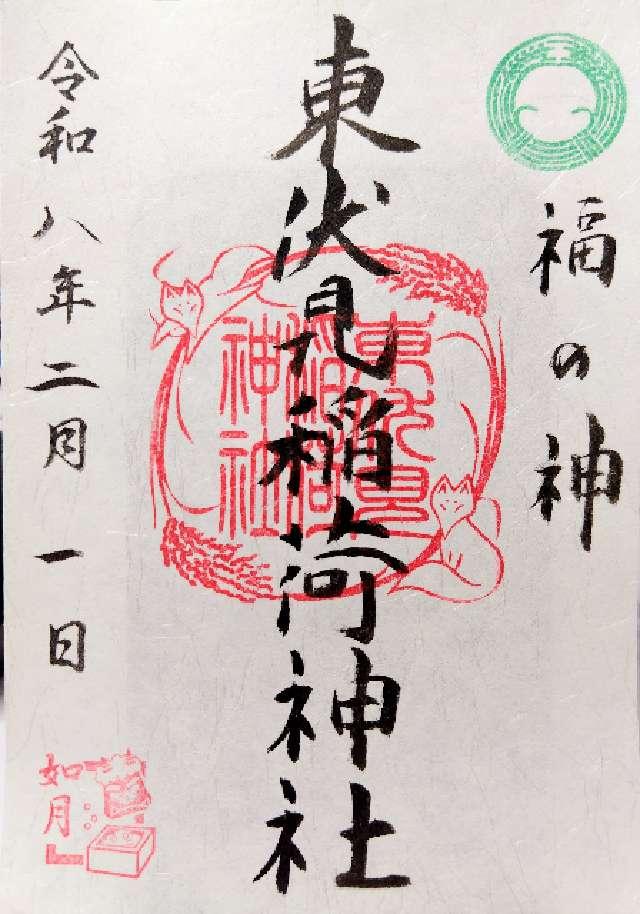 福の神
東伏見稲荷神社
東伏見
稲荷
神社
令和八年二月一日
如月